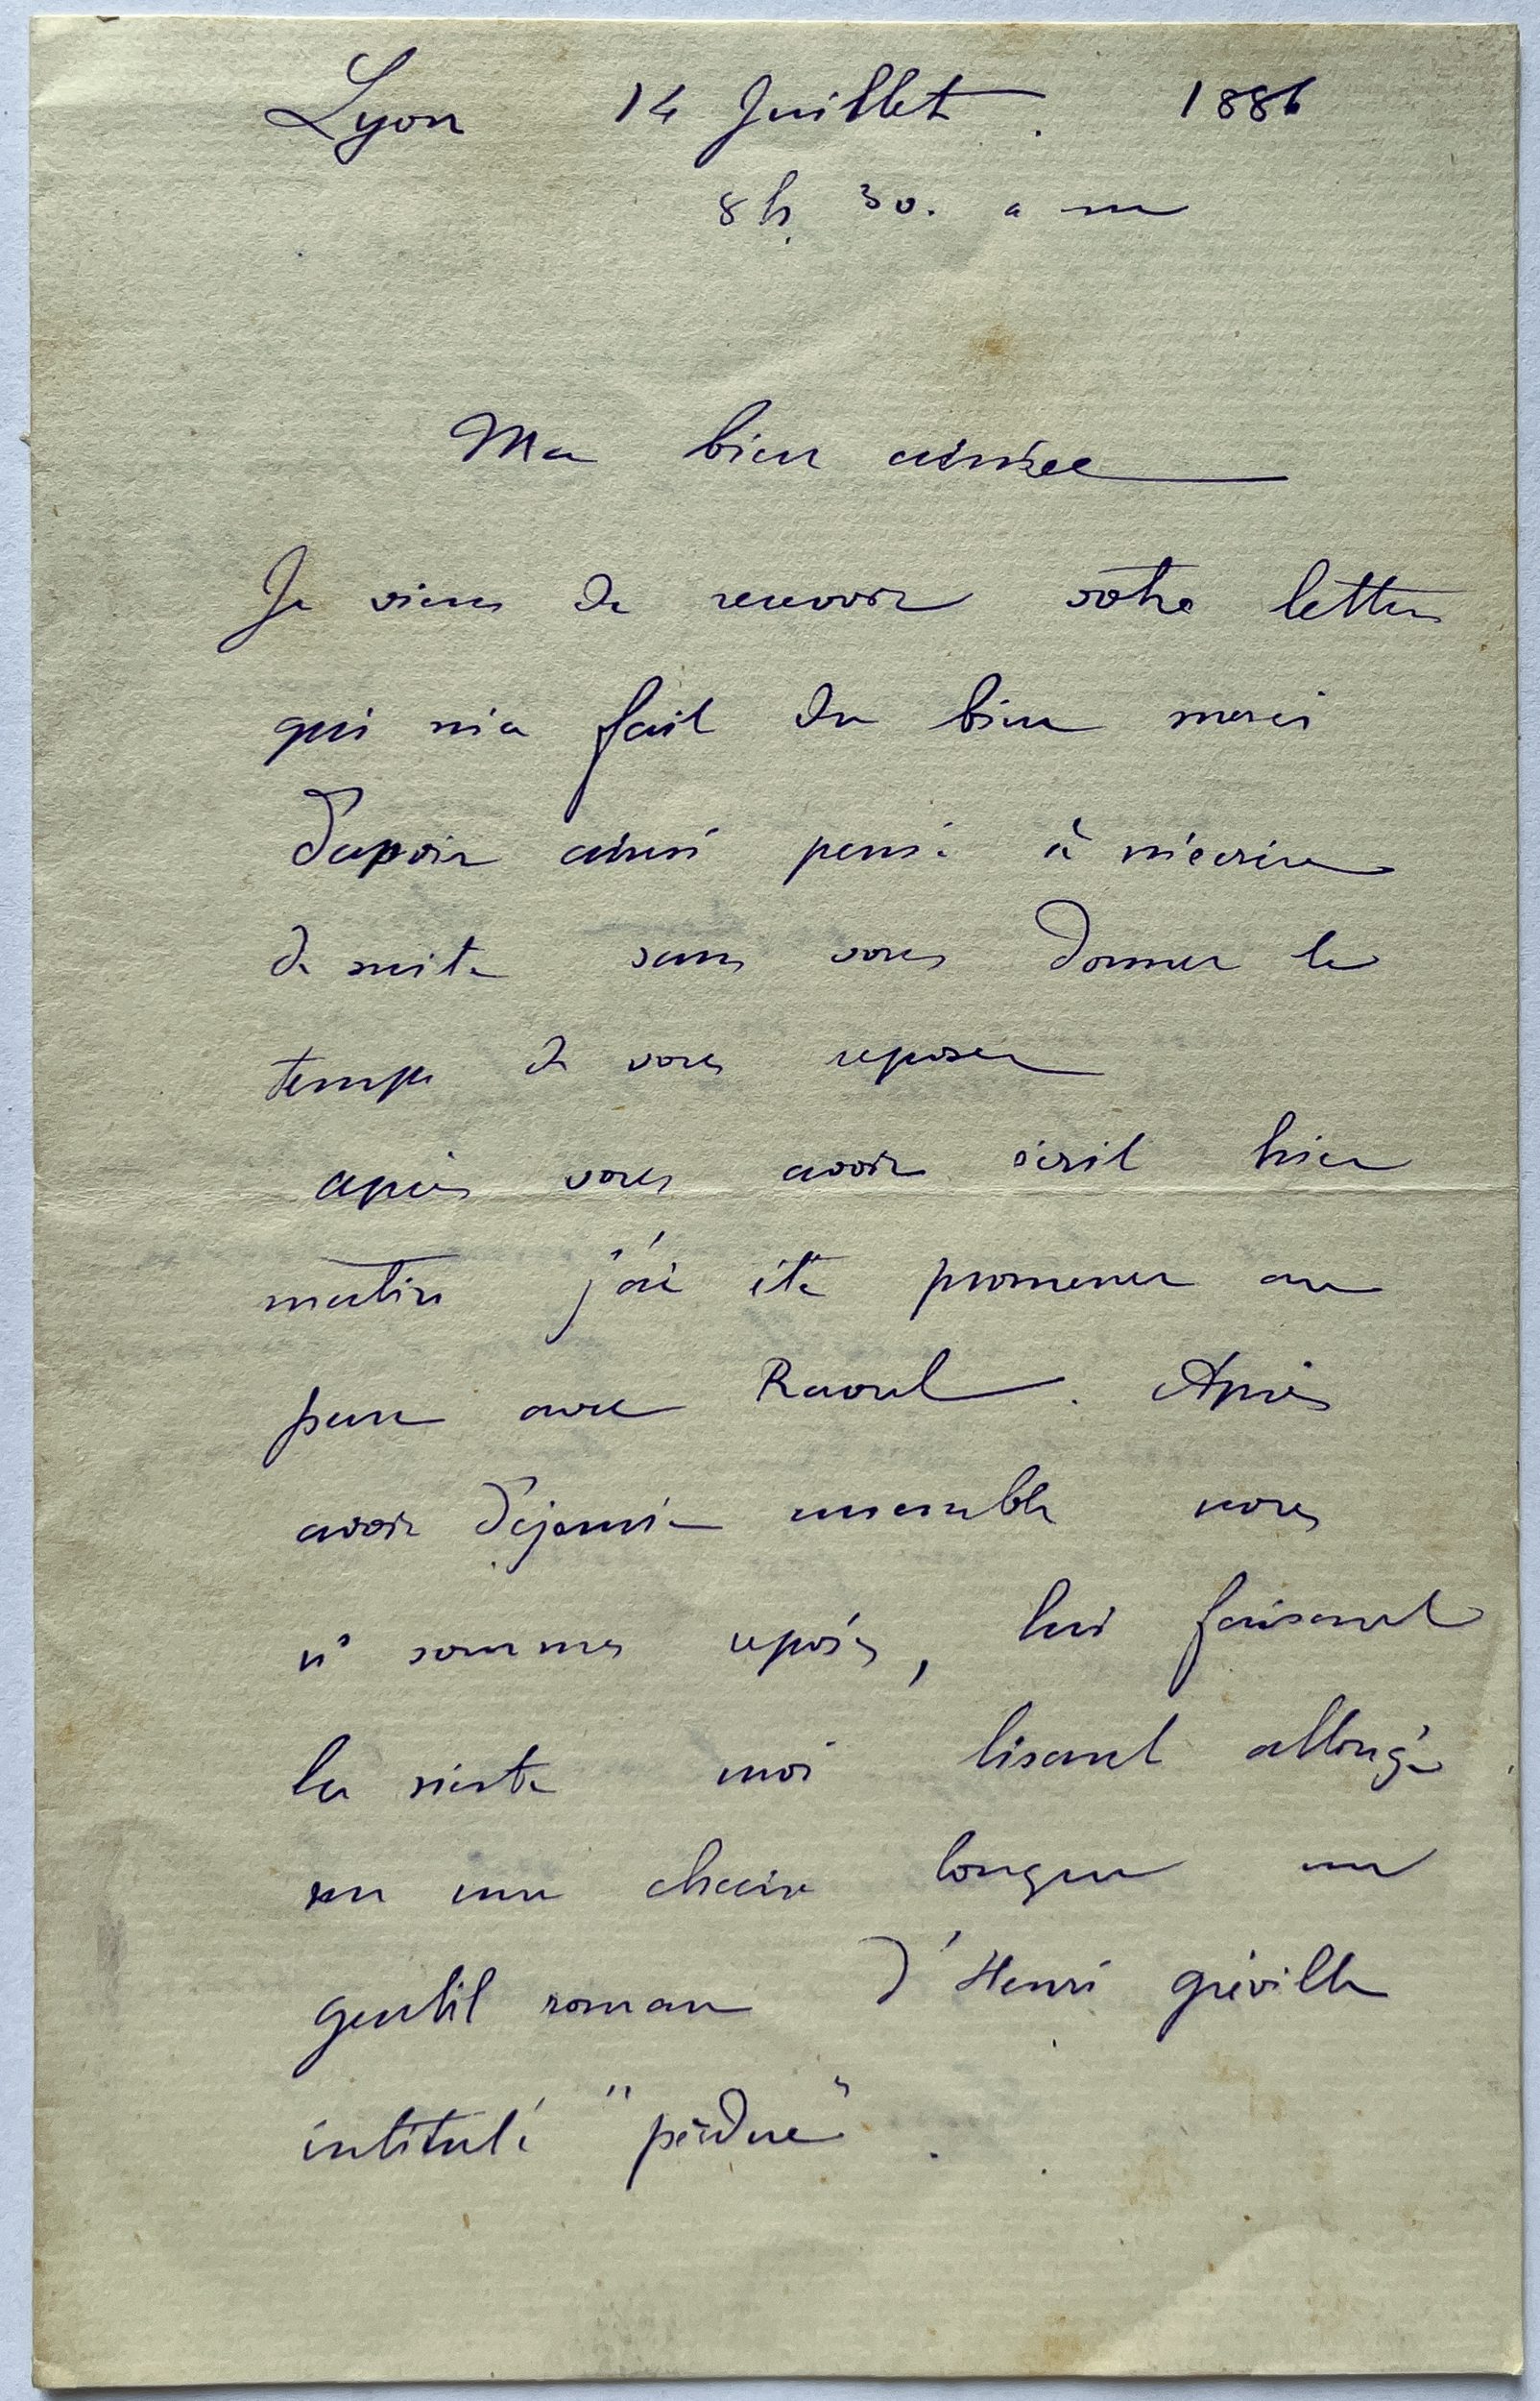 Lyon 14 Juillet. 1886
8h. 30. a m
Ma bien aimée
Je viens de recevoir votre lettre
qui m'a fait du bien merci
d'avoir ainsi pensé à m'écrire
de suite sans vous donner le
temps de vous reposer
après vous avoir écrit hier
matin j'ai été promener un
peu avec Raoul. Après
avoir déjeuné ensemble nous
ns sommes reposés, lui faisant
la sieste moi lisant allongé
sur une chaise longue un
gentil roman d'Henri gréville
intitulé "perdue".